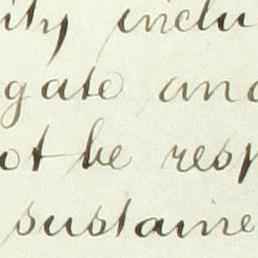 ity inclu
gate and
ot be resp
sustaine